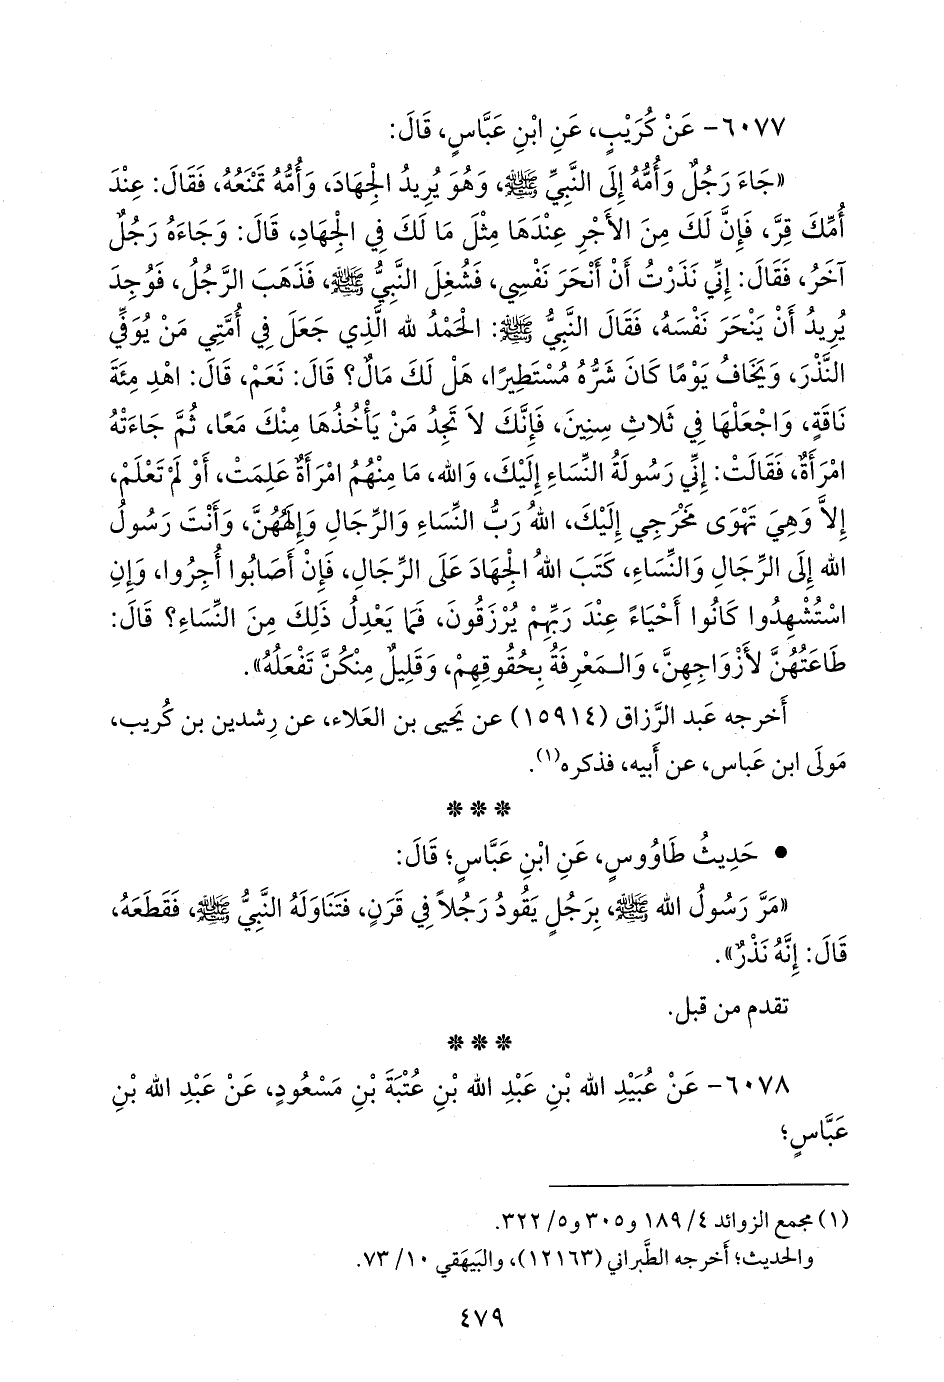 ٦٠٧٧- عَنْ كُرَيْبٍ، عَنِ ابْنِ عَبَّاسٍ، قَالَ:
«جَاءَ رَجُلٌ وَأُمُّهُ إِلَى النَّبِيِّ ﷺ، وَهُوَ يُرِيدُ الْجِهَادَ، وَأُمُّهُ تَمْنَعُهُ، فَقَالَ: عِنْدَ
أُمِّكَ قِرَّ، فَإِنَّ لَكَ مِنَ الأَجْرِ عِنْدَهَا مِثْلَ مَا لَكَ فِي الْجِهَادِ، قَالَ: وَجَاءَهُ رَجُلٌ
آخَرُ، فَقَالَ: إِنِّي نَذَرْتُ أَنْ أَنْحَرَ نَفْسِي، فَشُغِلَ النَّبِيُّ ﷺ، فَذَهَبَ الرَّجُلُ، فَوُجِدَ
يُرِيدُ أَنْ يَنْحَرَ نَفْسَهُ، فَقَالَ النَّبِيُّ ﷺ: الْحَمْدُ للهِ الَّذِي جَعَلَ فِي أُمَّتِي مَنْ يُوَفِّي
النَّذْرَ، وَيَخَافُ يَوْمًا كَانَ شَرُّهُ مُسْتَطِيرًا، هَلْ لَكَ مَالٌ؟ قَالَ: نَعَمْ، قَالَ: اهْدِ مِئَةَ
نَاقَةٍ، وَاجْعَلْهَا فِي ثَلاثِ سِنِينَ، فَإِنَّكَ لاَ تَجِدُ مَنْ يَأْخُذُهَا مِنْكَ مَعًا، ثُمَّ جَاءَتْهُ
امْرَأَةٌ، فَقَالَتْ: إِنِّي رَسُولَةُ النِّسَاءِ إِلَيْكَ، وَاللهِ، مَا مِنْهُمُ امْرَأَةٌ عَلِمَتْ، أَوْ لَمْ تَعْلَمْ،
إِلاَّ وَهِيَ تَهْوَى مَخْرَجِي إِلَيْكَ، اللهُ رَبُّ النِّسَاءِ وَالرِّجَالِ وَإِلَهُهُنَّ، وَأَنْتَ رَسُولُ
اللهِ إِلَى الرِّجَالِ وَالنِّسَاءِ، كَتَبَ اللهُ الْجِهَادَ عَلَى الرِّجَالِ، فَإِنْ أَصَابُوا أُجِرُوا، وَإِنِ
اسْتُشْهِدُوا كَانُوا أَحْيَاءً عِنْدَ رَبِّهِمْ يُرْزَقُونَ، فَمَا يَعْدِلُ ذَلِكَ مِنَ النِّسَاءِ؟ قَالَ:
طَاعَتُهُنَّ لأَزْوَاجِهِنَّ، وَالْمَعْرِفَةُ بِحُقُوقِهِمْ، وَقَلِيلٌ مِنْكُنَّ تَفْعَلُهُ».
أَخرجه عَبد الرَّزاق (١٥٩١٤) عن يَحيى بن العَلاء، عن رِشدين بن كُريب،
مَولَى ابن عَباس، عن أَبيه، فذكره(١).
***
● حَدِيثُ طَاوُوسٍ، عَنِ ابْنِ عَبَّاسٍ؛ قَالَ:
«مَرَّ رَسُولُ اللهِ ﷺ، بِرَجُلٍ يَقُودُ رَجُلاً فِي قَرَنٍ، فَتَنَاوَلَهُ النَّبِيُّ ﷺ، فَقَطَعَهُ،
قَالَ: إِنَّهُ نَذْرٌ».
تقدم من قبل.
***
٦٠٧٨- عَنْ عُبَيْدِ اللهِ بْنِ عَبْدِ اللهِ بْنِ عُتْبَةَ بْنِ مَسْعُودٍ، عَنْ عَبْدِ اللهِ بْنِ
عَبَّاسٍ؛
(١) مجمع الزوائد ٤/ ١٨٩ و٣٠٥ و٥/ ٣٢٢.
والحديث؛ أَخرجه الطَّبراني (١٢١٦٣)، والبَيهَقي ١٠/ ٧٣.
٤٧٩